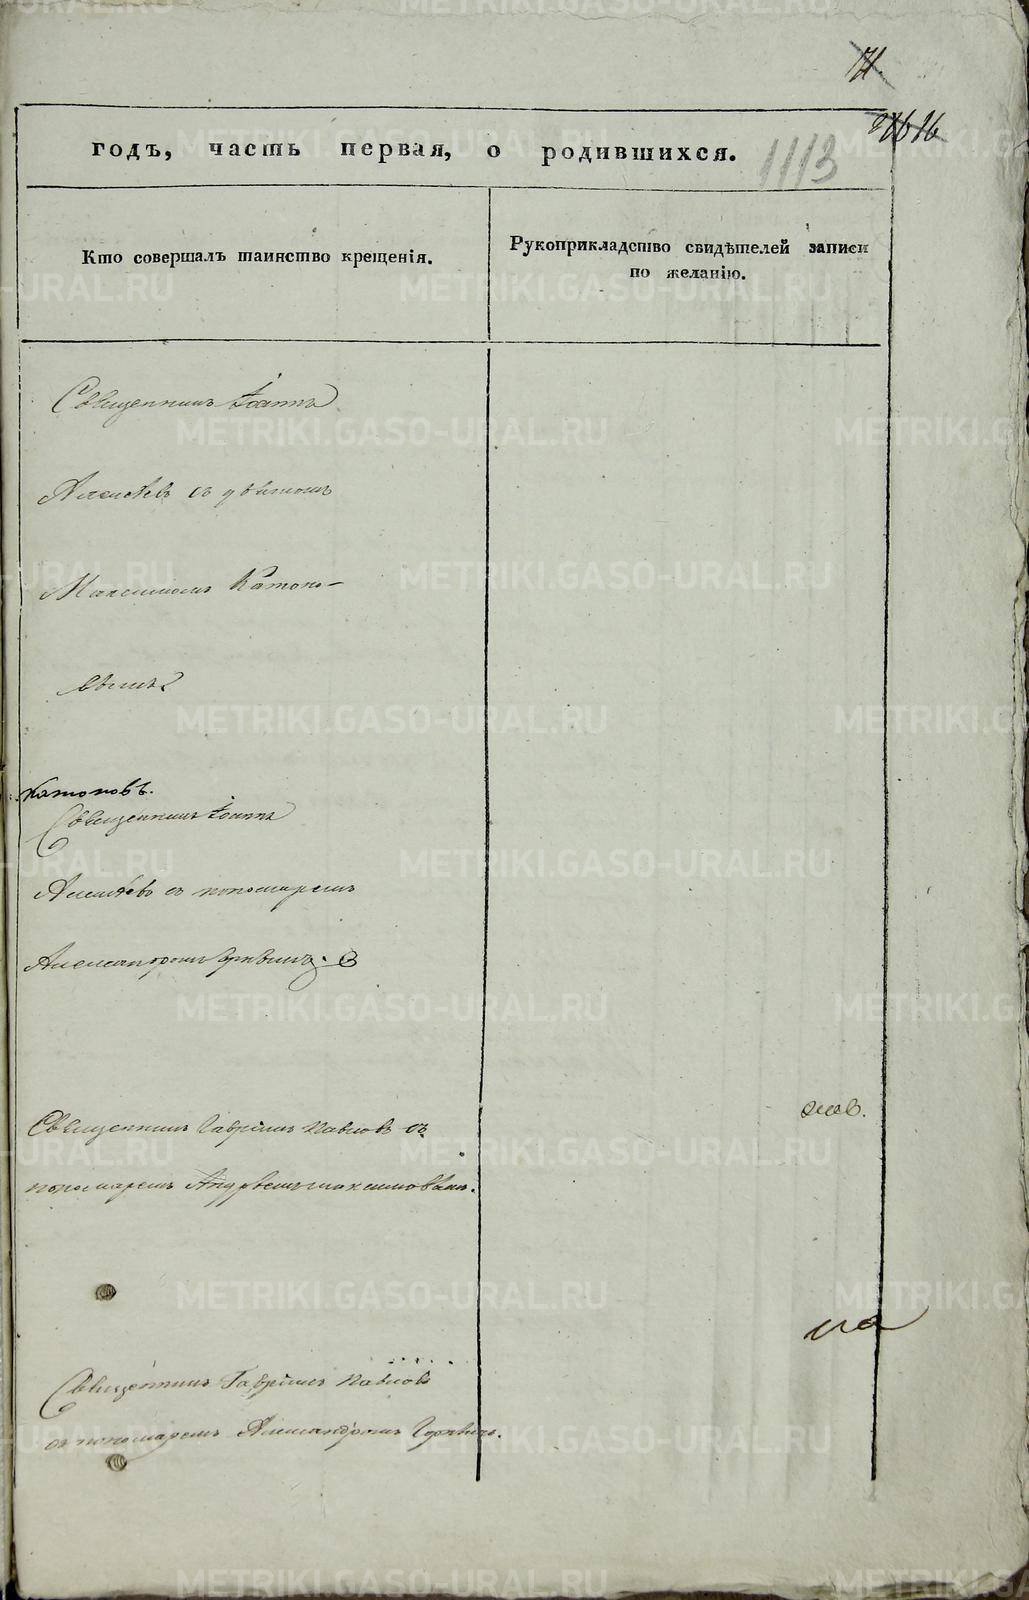 71.
1616
годъ, часть первая, о родившихся.
1113
Кто совершалъ таинство крещенія.
Рукоприкладство свидѣтелей записи
по желанію.
Священникъ Іоаннъ
Алексѣевъ съ
Максимомъ Катоно-
вымъ
Катоновъ.
Священникъ Іоаннъ
Алексѣевъ съ пономаремъ
Александромъ
Священникъ Гавріилъ Павловъ съ
пономаремъ Андреемъ Максимовымъ.
на
Священникъ Гавріилъ Павловъ
съ пономаремъ Александромъ
METRIKI.GASO-URAL.RU